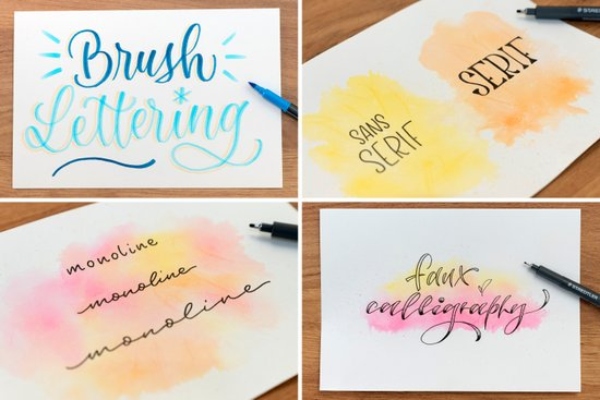 Brush
Lettering
SANS
SERIF
SERIF
monoline
monoline
monoline
faux
calligraphy
STAEDTLER